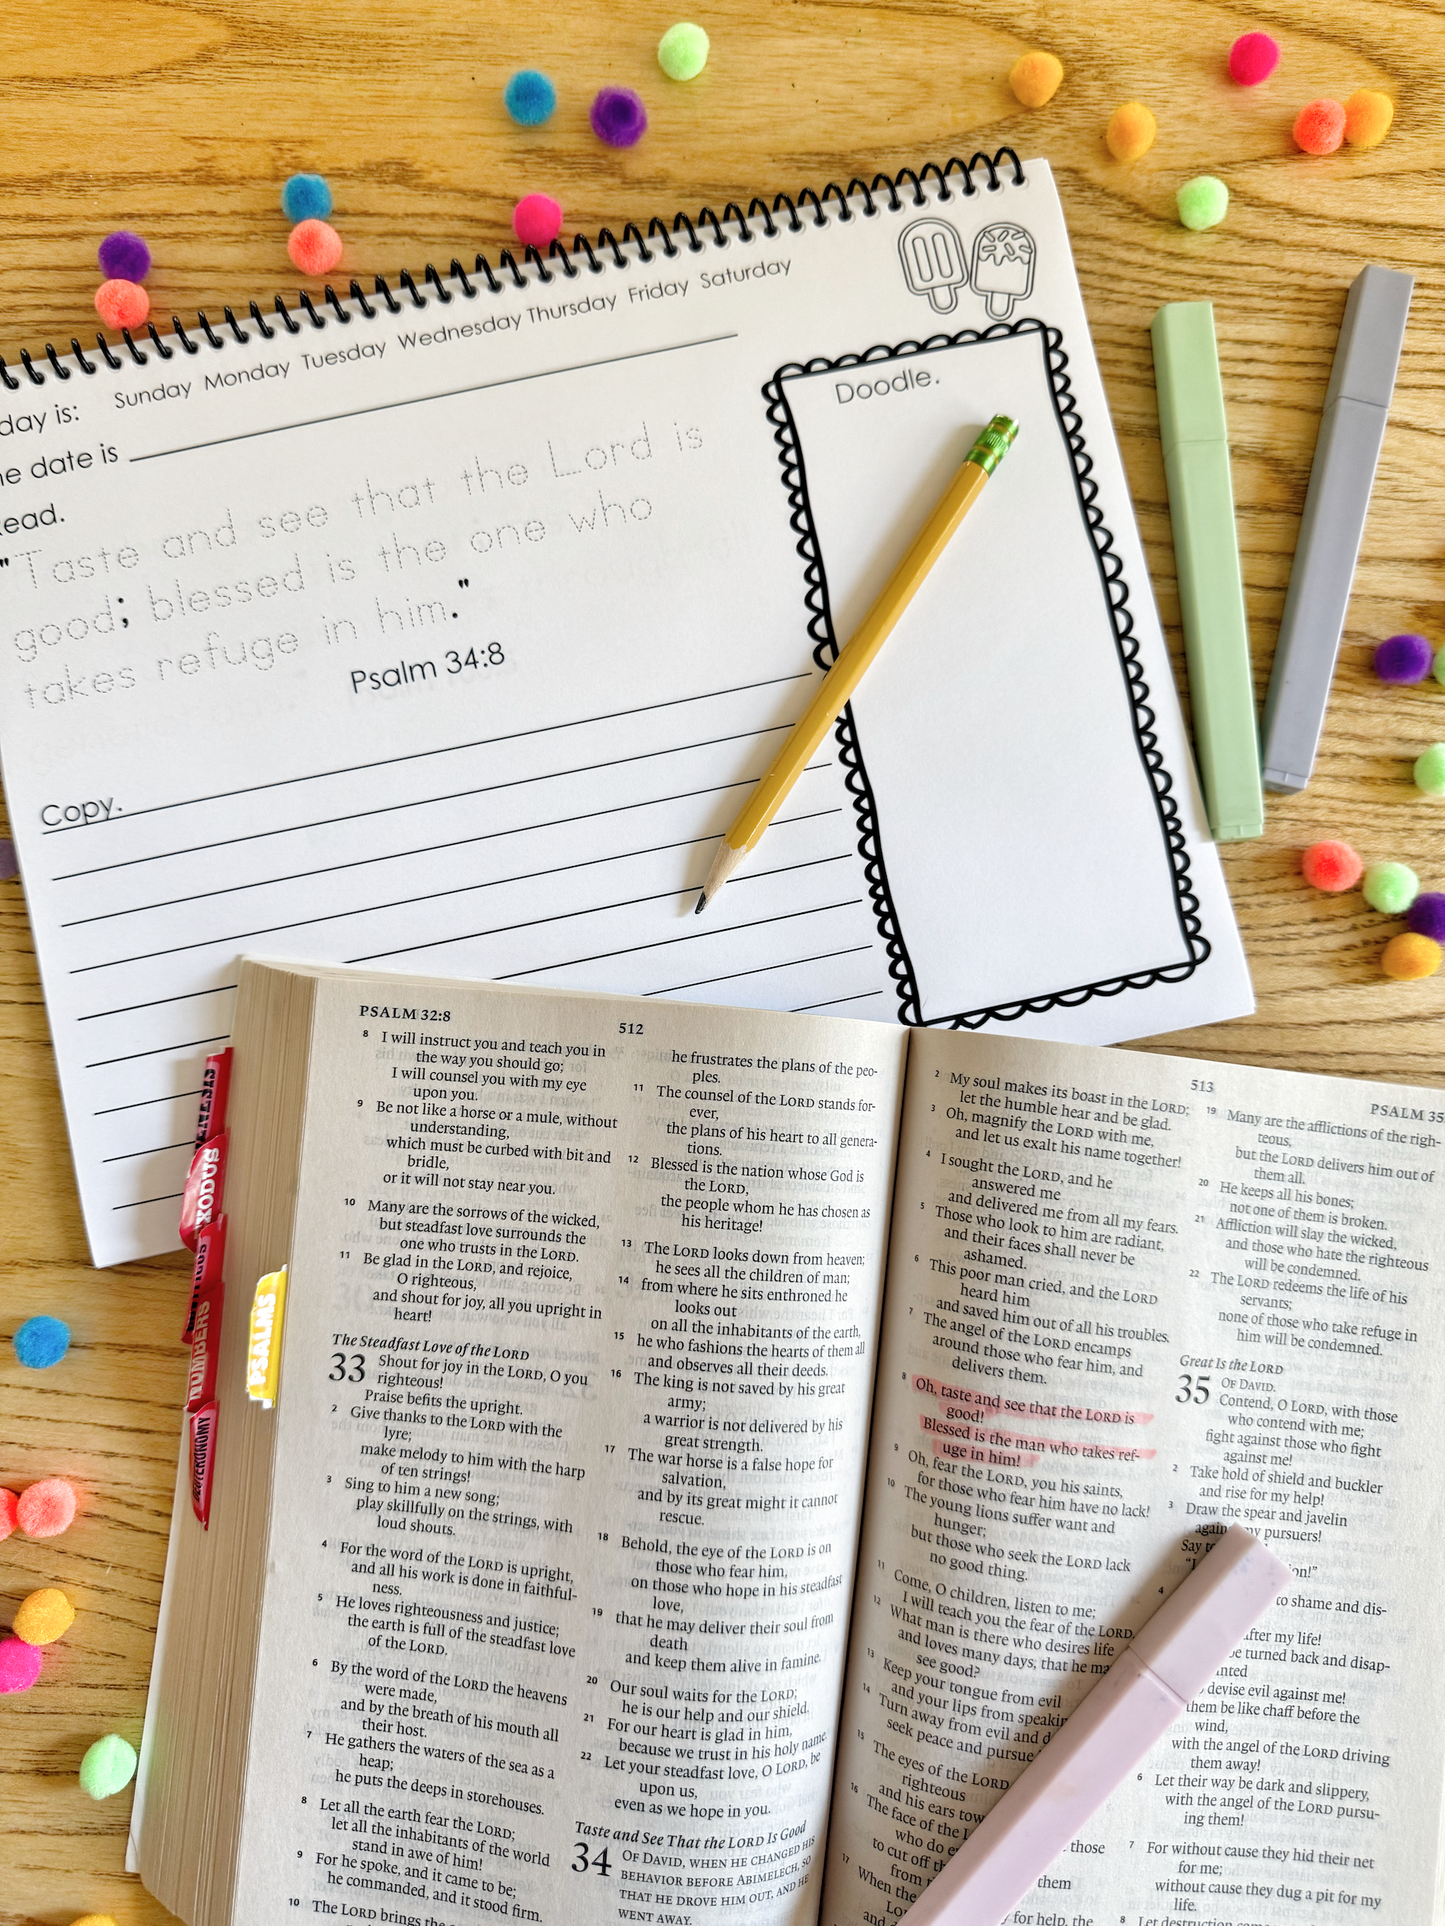 day is: Sunday Monday Tuesday Wednesday Thursday Friday Saturday
date is
"Taste and see that the Lord is
good; blessed is the one who
takes refuge in him."
Psalm 34:8
Copy.
Doodle.
EXODUS
NUMBERS
DEUTERONOMY
PSALMS
PSALM 32:8
512
8 I will instruct you and teach you in
the way you should go;
I will counsel you with my eye
upon you.
9 Be not like a horse or a mule, without
understanding,
which must be curbed with bit and
bridle,
or it will not stay near you.
10 Many are the sorrows of the wicked,
but steadfast love surrounds the
one who trusts in the LORD.
11 Be glad in the LORD, and rejoice,
O righteous,
and shout for joy, all you upright in
heart!
The Steadfast Love of the LORD
33 Shout for joy in the LORD, O you
righteous!
Praise befits the upright.
2 Give thanks to the LORD with the
lyre;
make melody to him with the harp
of ten strings!
3 Sing to him a new song;
play skillfully on the strings, with
loud shouts.
4 For the word of the LORD is upright,
and all his work is done in faithful-
ness.
5 He loves righteousness and justice;
the earth is full of the steadfast love
of the LORD.
6 By the word of the LORD the heavens
were made,
and by the breath of his mouth all
their host.
7 He gathers the waters of the sea as a
heap;
he puts the deeps in storehouses.
8 Let all the earth fear the LORD;
let all the inhabitants of the world
stand in awe of him!
9 For he spoke, and it came to be;
he commanded, and it stood firm.
10 The LORD brings the
he frustrates the plans of the peo-
ples.
11 The counsel of the LORD stands for-
ever,
the plans of his heart to all genera-
tions.
12 Blessed is the nation whose God is
the LORD,
the people whom he has chosen as
his heritage!
13 The LORD looks down from heaven;
he sees all the children of man;
14 from where he sits enthroned he
looks out
on all the inhabitants of the earth,
15 he who fashions the hearts of them all
and observes all their deeds.
16 The king is not saved by his great
army;
a warrior is not delivered by his
great strength.
17 The war horse is a false hope for
salvation,
and by its great might it cannot
rescue.
18 Behold, the eye of the LORD is on
those who fear him,
on those who hope in his steadfast
love,
19 that he may deliver their soul from
death
and keep them alive in famine.
20 Our soul waits for the LORD;
he is our help and our shield.
21 For our heart is glad in him,
because we trust in his holy name.
22 Let your steadfast love, O LORD, be
upon us,
even as we hope in you.
Taste and See That the LORD Is Good
34 OF DAVID, WHEN HE CHANGED HIS
BEHAVIOR BEFORE ABIMELECH, SO
THAT HE DROVE HIM OUT, AND HE
WENT AWAY.
513
PSALM 35
2 My soul makes its boast in the LORD;
let the humble hear and be glad.
3 Oh, magnify the LORD with me,
and let us exalt his name together!
4 I sought the LORD, and he
answered me
and delivered me from all my fears.
5 Those who look to him are radiant,
and their faces shall never be
ashamed.
6 This poor man cried, and the LORD
heard him
and saved him out of all his troubles.
7 The angel of the LORD encamps
around those who fear him, and
delivers them.
8 Oh, taste and see that the LORD is
good!
Blessed is the man who takes ref-
uge in him!
9 Oh, fear the LORD, you his saints,
for those who fear him have no lack!
10 The young lions suffer want and
hunger;
but those who seek the LORD lack
no good thing.
11 Come, O children, listen to me;
I will teach you the fear of the LORD.
12 What man is there who desires life
and loves many days, that he
see good?
13 Keep your tongue from evil
and your lips from
14 Turn away from evil and
seek peace and pursue
15 The eyes of the LORD
righteous
and his ears
16 The face of the
who do
to cut off
from
17 When the
those
them
for help, the
19 Many are the afflictions of the righ-
teous,
but the LORD delivers him out of
them all.
20 He keeps all his bones;
not one of them is broken.
21 Affliction will slay the wicked,
and those who hate the righteous
will be condemned.
22 The LORD redeems the life of his
servants;
none of those who take refuge in
him will be condemned.
Great Is the LORD
35 OF DAVID.
Contend, O LORD, with those
who contend with me;
fight against those who fight
against me!
2 Take hold of shield and buckler
and rise for my help!
3 Draw the spear and javelin
my pursuers!
Say
4
to shame and dis-
after my life!
turned back and disap-
devise evil against me!
them be like chaff before the
wind,
with the angel of the LORD driving
them away!
6 Let their way be dark and slippery,
with the angel of the LORD pursu-
ing them!
7 For without cause they hid their net
for me;
without cause they dug a pit for my
life.
8 Let destruction